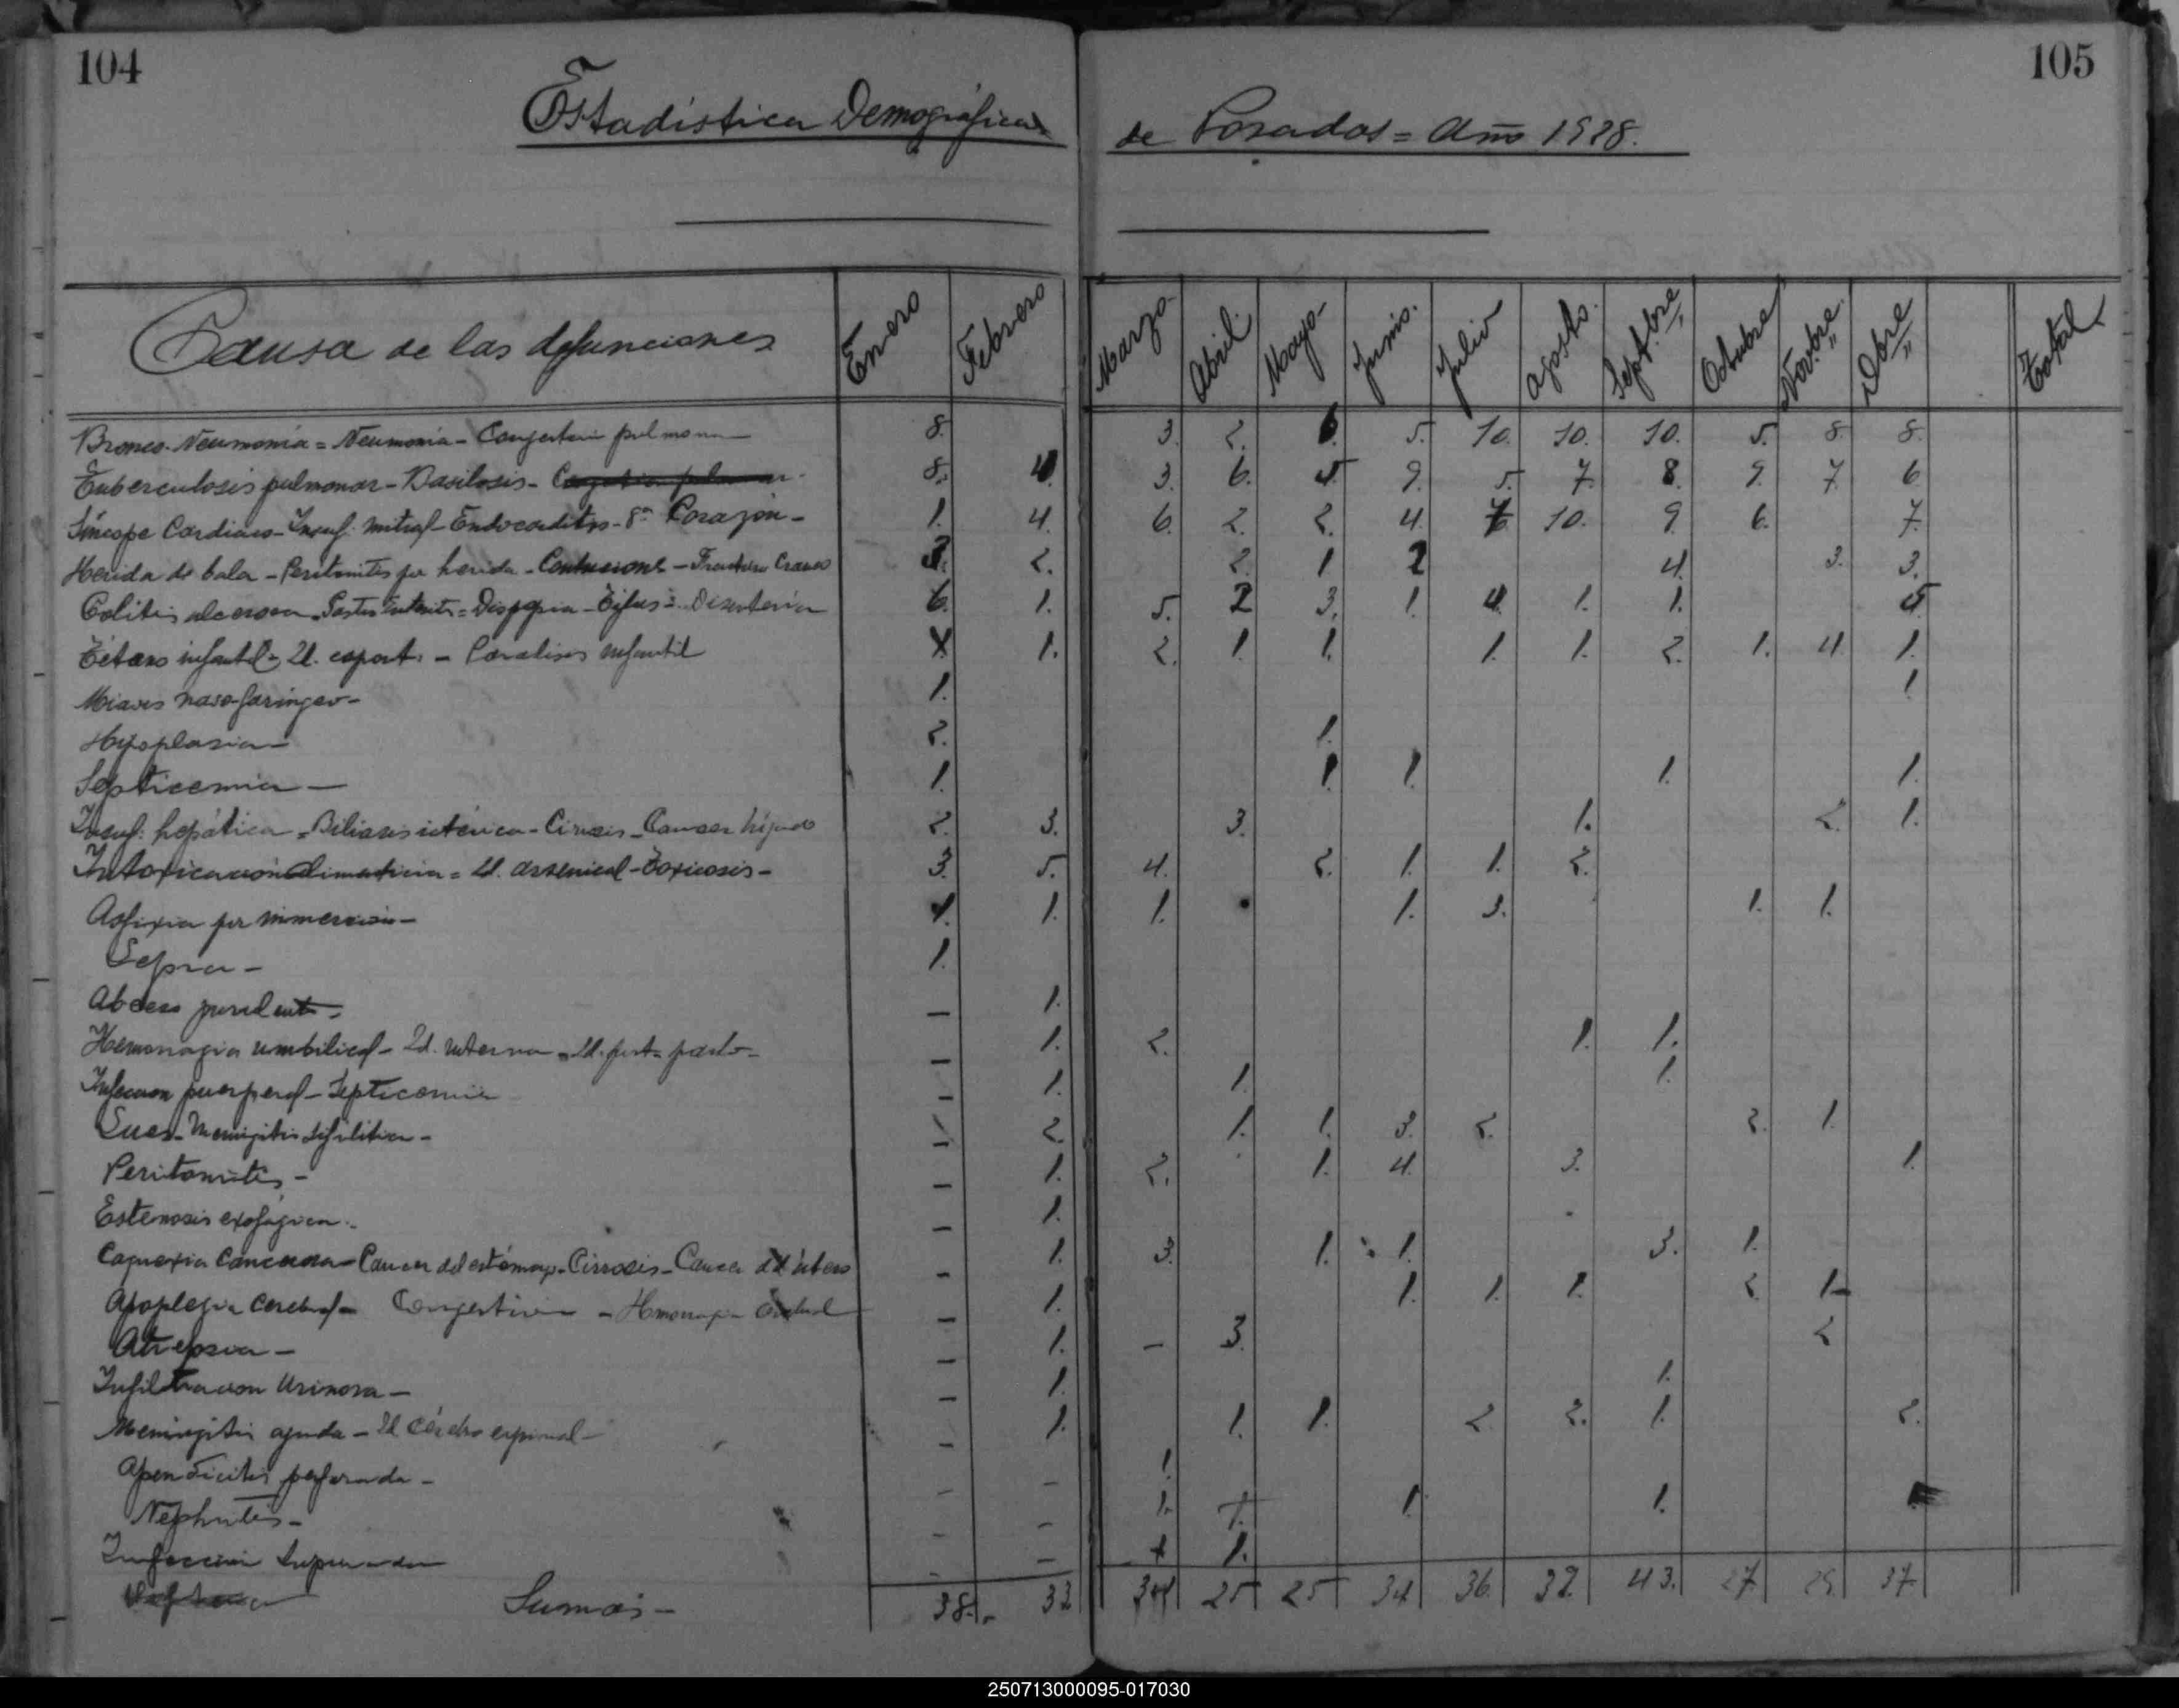 104
105
Estadística Demográfica de Posadas = Año 1928.
Causa de las defunciones Enero Febrero Marzo- Abril. Mayo- Junio. Julio Agosto. Sept.bre Octubre Nov.bre Dbre Total
Bronco-Neumonía = Neumonía - Congestión pulmonar 8. 3. 2. 6. 5. 10. 10. 10. 5. 8. 8.
Tuberculosis pulmonar - Basilosis - 8. 4. 3. 6. 5 9. 5. 7. 8. 9. 7. 6
Síncope Cardiaco - Insuf. mitral - Endocarditis - Corazón - 1. 4. 6. 2. 2. 4. 7. 10. 9. 6. 7.
Herida de bala - Peritonitis por herida - Contusiones - Fractura Craneo 3. 2. 2. 1 2 4. 3. 3.
Colitis ulcerosa - Gastro Enteritis = Dispepsia - Tifus = Disenteria 6. 1. 5. 2 3. 1. 4. 1. 1. 5
Tétano infantil - Id. - Paralisis infantil 1. 2. 1. 1. 1. 1. 2. 1. 4. 1.
Miasis naso-faríngeo - 1. 1.
Hypoplasia - 2. 1.
Septicemia - 1. 1. 1. 1. 1.
Insuf. hepática = Biliasis ictérica - Cirrosis - Cancer hígado 2. 3. 3. 1. 2. 1.
Intoxicación alimenticia = Id. arsenical - Toxicosis - 3. 5. 4. 2. 1. 1. 2.
Asfixia por inmersion - 1. 1. 1. 1. 3. 1. 1.
Lepra - 1.
Abceso purulento - - 1.
Hemorragia umbilical - Id. interna - Id. post-parto - - 1. 2. 1. 1.
Infeccion puerperal - Septicemia - 1. 1. 1.
Lues - Meningitis sifilitica - - 2. 1. 1. 3. 2. 2. 1.
Peritonitis - - 1. 2. 1. 4. 3. 1.
Estenosis exofágica - - 1.
Caquexia Cancerosa - Cancer del estómago - Cirrosis - Cancer del útero - 1. 3. 1. 1. 3. 1.
Apoplegia Cerebral - Congestion - Hemorragia Cerebral - 1. 1. 1. 1. 2. 1-
Atrepsia - - 1. - 3. 2
Infiltracion Urinosa - - 1. 1.
Meningitis aguda - Id Cérebro espinal - - 1. 1. 1. 2 2. 1. 2.
Apendicitis perforada - - - 1.
Nephritis - - - 1. 1. 1. 1.
Infección supurada - - 1.
Sumas - 38. 32 34 25 25 34 36. 32. 43. 27 37
250713000095-017030